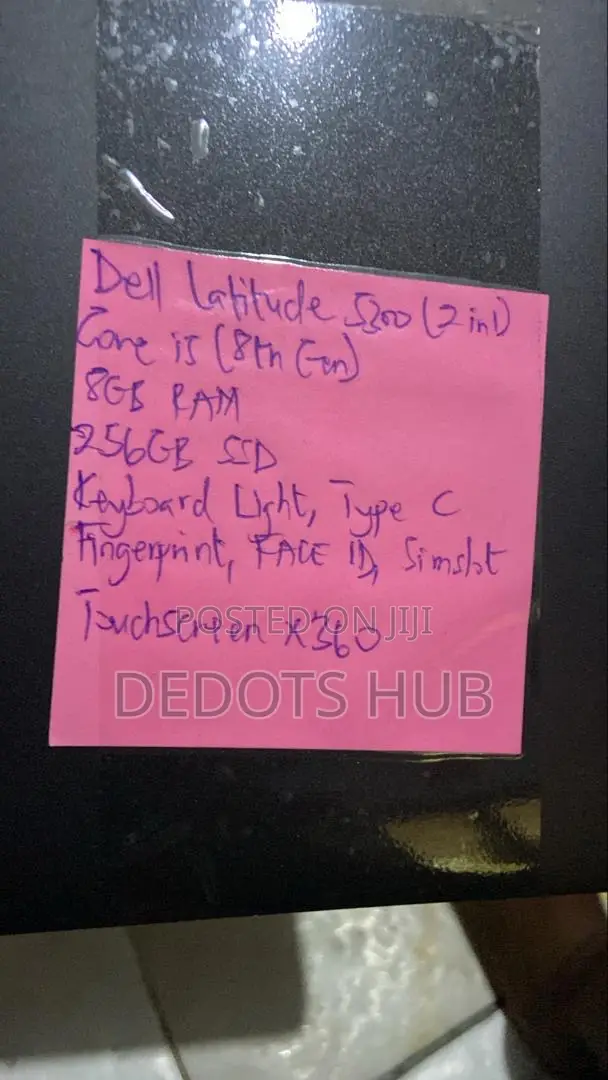 Dell Latitude 5300 (2 in 1)
Core i5 (8th Gen)
8GB RAM
256GB SSD
Keyboard Light, Type C
Fingerprint, FACE ID, Simslot
Touchscreen x360
POSTED ON JIJI
DEDOTS HUB